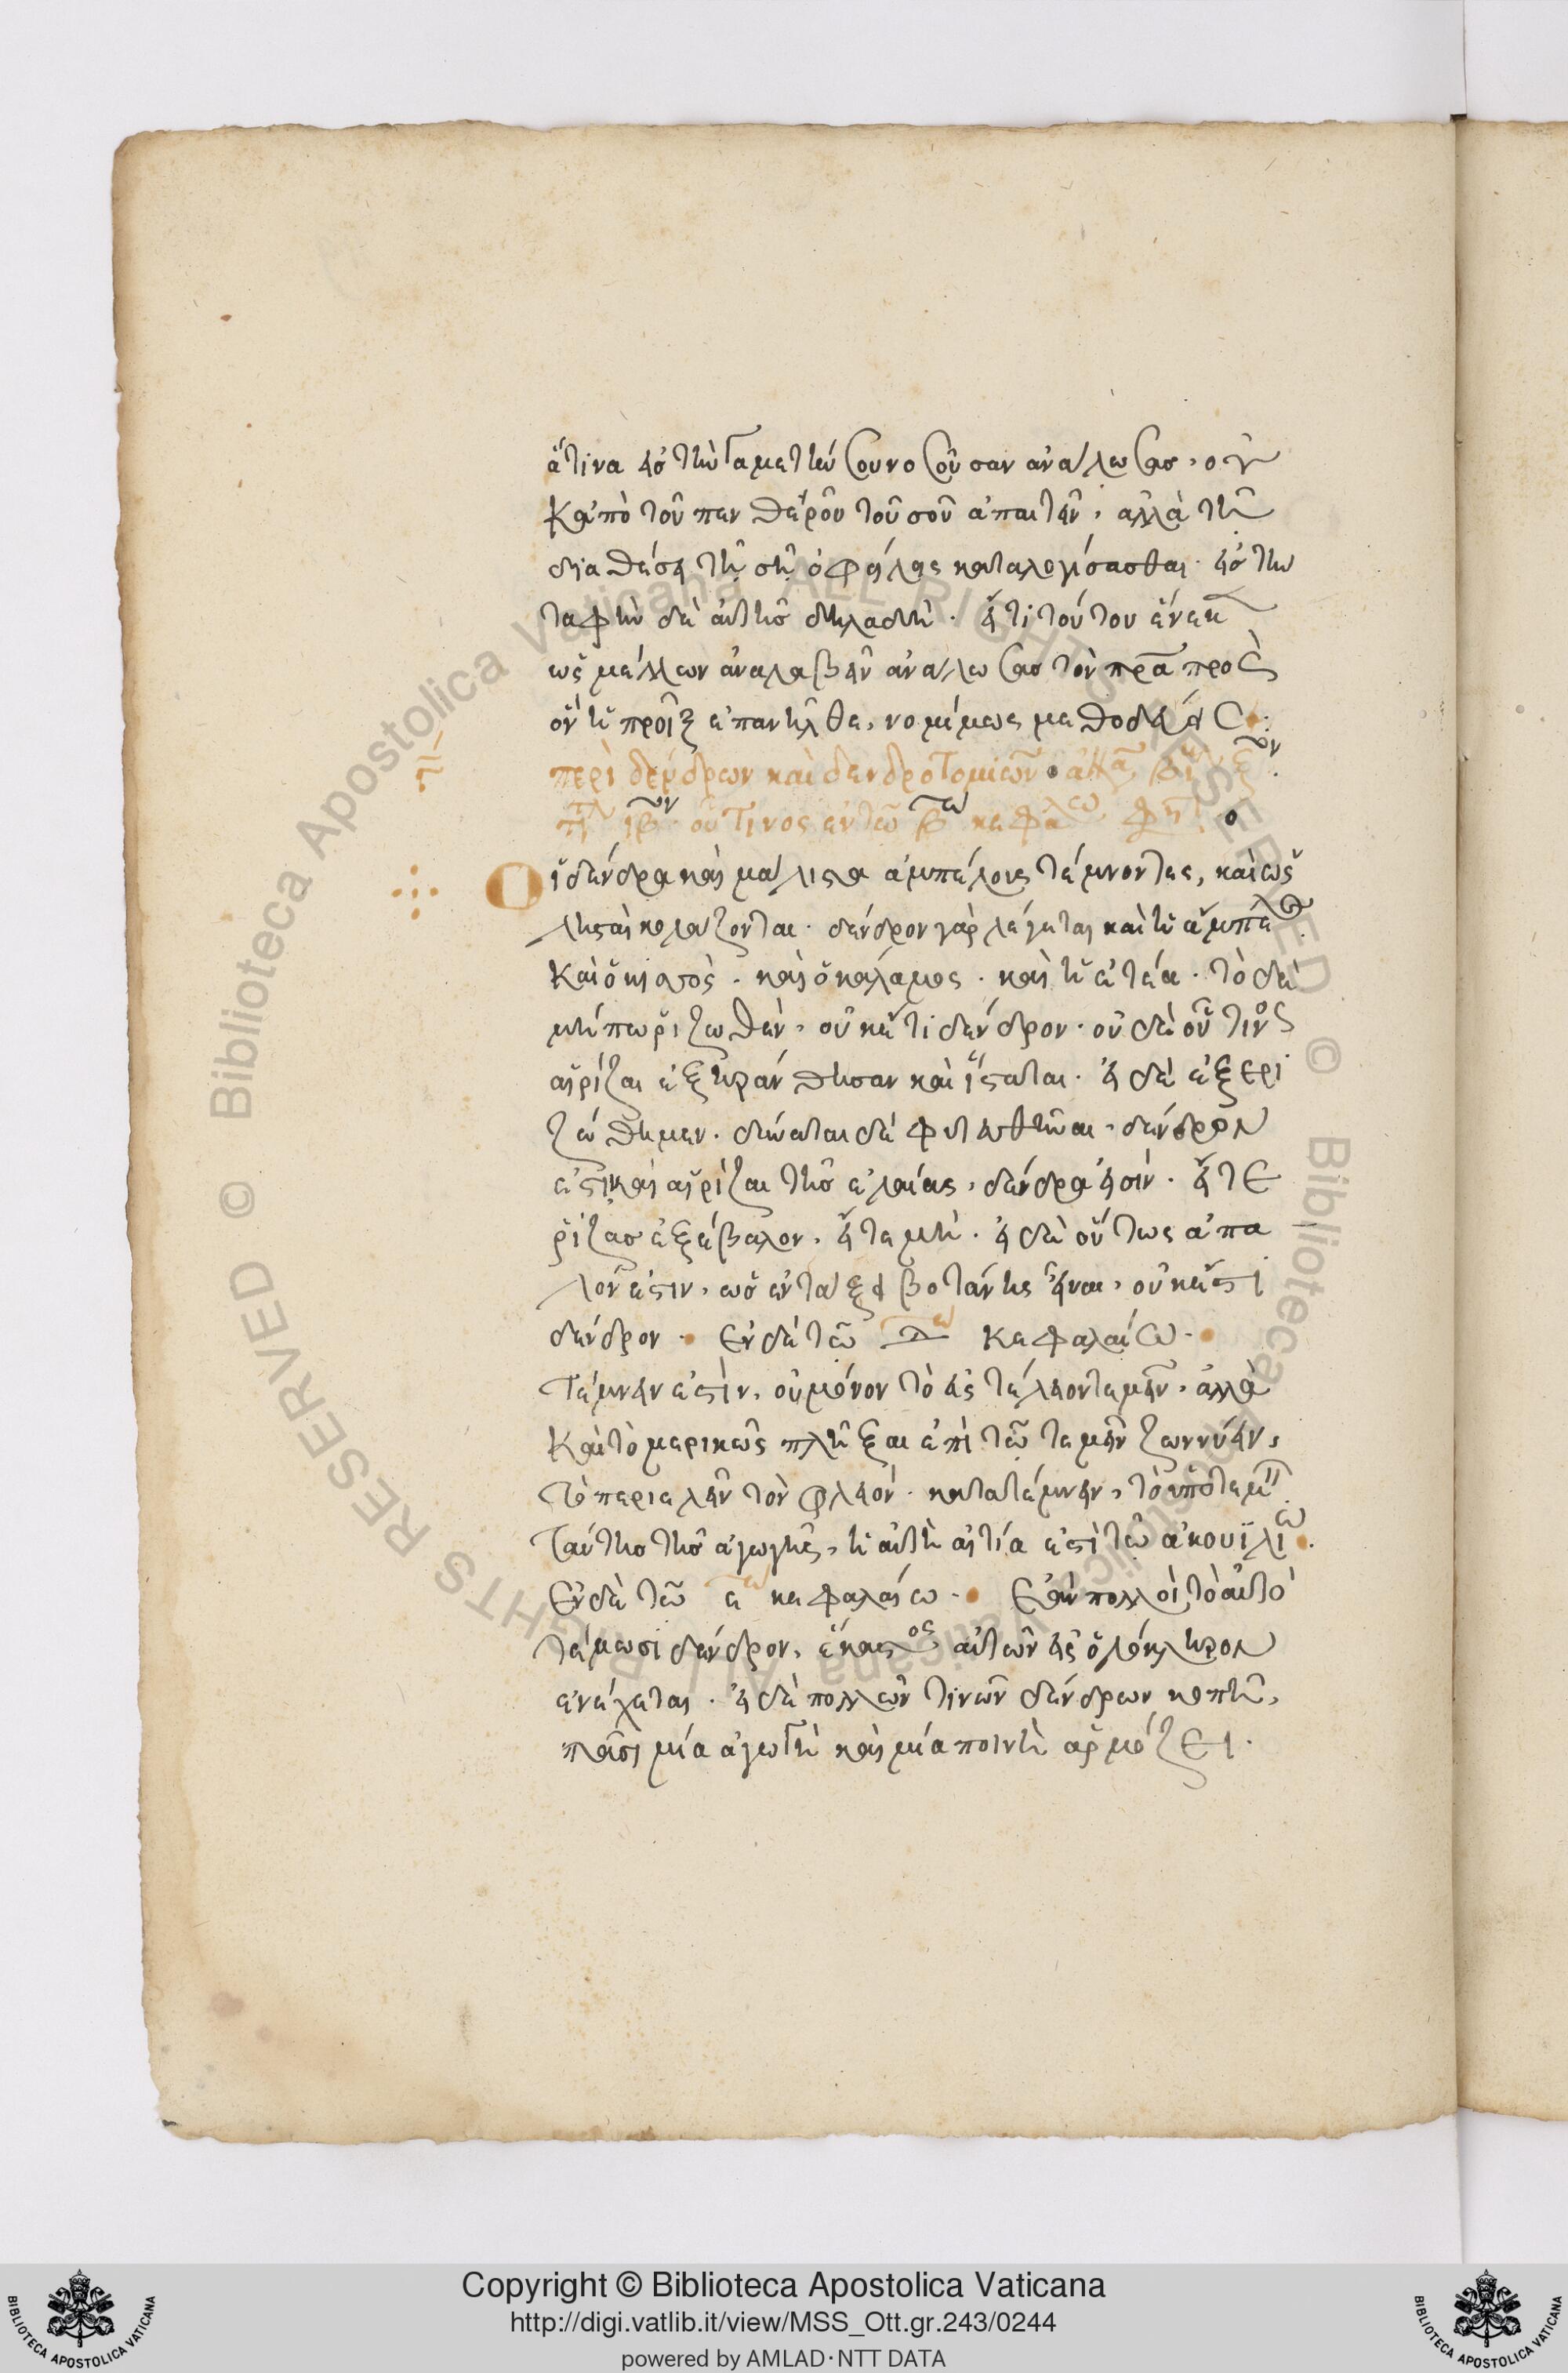 ἅτινα εἰς τὴν γαμετὴν σου νοσοῦσαν ἀνάλωσας, οὐ
κἀπὸ τοῦ πενθεροῦ τοῦ σοῦ ἀπαιτεῖν, ἀλλὰ τῆ
διαθέσει τῆ σῆ ὀφείλεις καταλογίσασθαι. εἰς τὴν
ταφὴν δὲ αὐτῆς δηλαδή. εἴ τι τούτου ἕνεκ
ὡς μέλλων ἀναλαβεῖν ἀνάλωσας τὸν πρα προς
ὃν ἡ προῖξ ἐπανῆλθε, νομίμως μεθοδεύεις:
περὶ δένδρων καὶ δενδροτομιῶν
οὗτινος ἐν τῶ β κεφα φη
Οἱ δένδρα καὶ μάλιστα ἀμπέλους τέμνοντες, καὶ ὡς
λησταὶ κολάζονται. δένδρον γὰρ λέγεται καὶ ἡ ἄμπελος
καὶ ὁ κισσὸς. καὶ ὁ κάλαμος. καὶ ἡ ἰτέα. τὸ δὲ
μήπω ῥιζωθὲν, οὐκ ἔστι δένδρον. οὐδὲ οὗ τινὸς
αἱ ρίζαι ἐξηράνθησαν καὶ ἵσταται. εἰ δὲ ἐξερι
ζώθη μεν. δύναται δὲ φυτευθῆναι, δένδρον
ἐστὶ καὶ αἱ ρίζαι τῆς ἐλαίας, δένδρα εἰσίν. εἴτε
ῥίζας ἐξέβαλον, εἴτε μὴ. εἰ δὲ οὕτως ἁπα
λόν ἐστιν, ὡς ἐν τάξει βοτάνης εἶναι, οὐκ ἔστι
δένδρον. Ἐν δὲ τῶ δ κεφαλαίω.
Τέμνειν ἐστὶν, οὐ μόνον τὸ εἰς τέλειον τεμεῖν. ἀλλὰ
καὶ τὸ μερικῶς πλῆξαι ἐπὶ τῶ τεμεῖν ζωννύειν,
τὸ περιελεῖν τὸν φλοιόν. κατατέμνειν, τὸ ὑποτεμεῖν
ταύτης τῆς ἀγωγῆς, ἡ αὐτὴ αἰτία ἐστὶ τῶ ἀκουϊλίω.
Ἐν δὲ τῶ ε κεφαλαίω. Ἐὰν πολλοὶ τὸ αὐτὸ
τέμωσι δένδρον, ἕκαστος αὐτῶν εἰς ὁλόκληρον
ἐνέχεται. εἰ δὲ πολλῶν τινῶν δένδρων κοπῆ,
πᾶσι μία ἀγωγὴ καὶ μία ποινὴ ἁρμόζει.
Copyright © Biblioteca Apostolica Vaticana
http://digi.vatlib.it/view/MSS_Ott.gr.243/0244
powered by AMLAD·NTT DATA